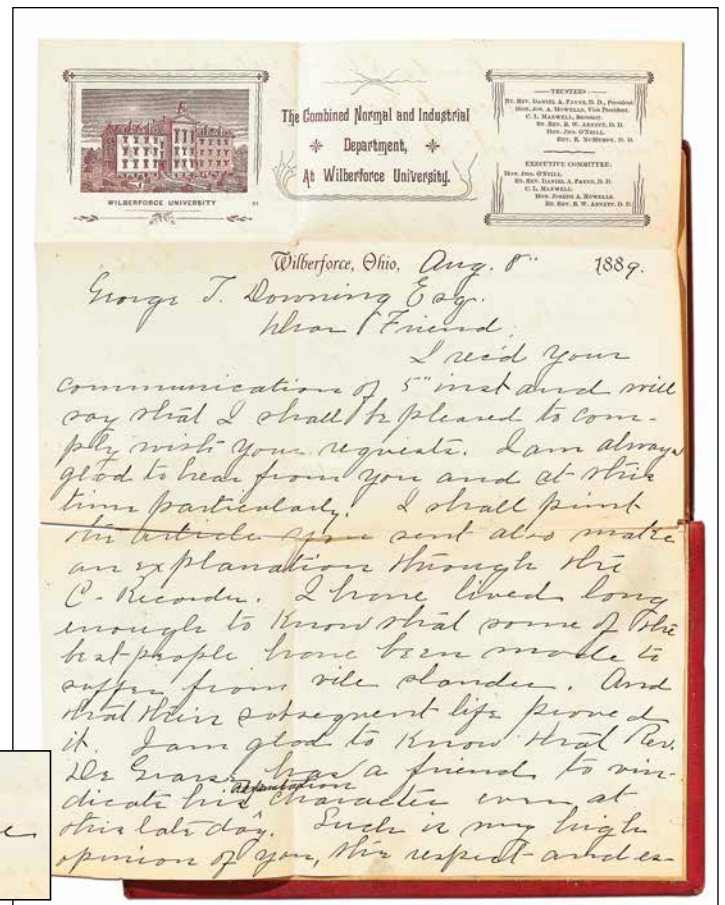 WILBERFORCE UNIVERSITY
The Combined Normal and Industrial
Department,
At Wilberforce University.
TRUSTEES:
RT. REV. DANIEL A. PAYNE, D. D., President
HON. JOS. A. HOWELLS, Vice President.
C. L. MAXWELL, Secretary.
RT. REV. B. W. ARNETT, D. D.
HON. JNO. O'NEILL.
REV. E.
EXECUTIVE COMMITTEE:
HON. JNO. O'NEILL
RT. REV. DANIEL A. PAYNE, D. D.
C. L. MAXWELL
HON. JOSEPH A. HOWELLS
RT. REV. B. W. ARNETT, D. D.
Wilberforce, Ohio, Aug. 8" 1889.
George T. Downing Esq.
Dear Friend,
I rec'd your
communication of 5" inst and will
say that I shall be pleased to com-
ply with your requests. I am always
glad to hear from you and at this
time particularly. I shall print
the article you sent also make
an explanation through the
C. Recorder. I have lived long
enough to know that some of the
best people have been made to
suffer from vile slander. And
that their subsequent life proved
it. I am glad to know that Rev.
De Grasse has a friend to vin-
dicate his reputation character even at
this late day. Such is my high
opinion of you, the respect and es-